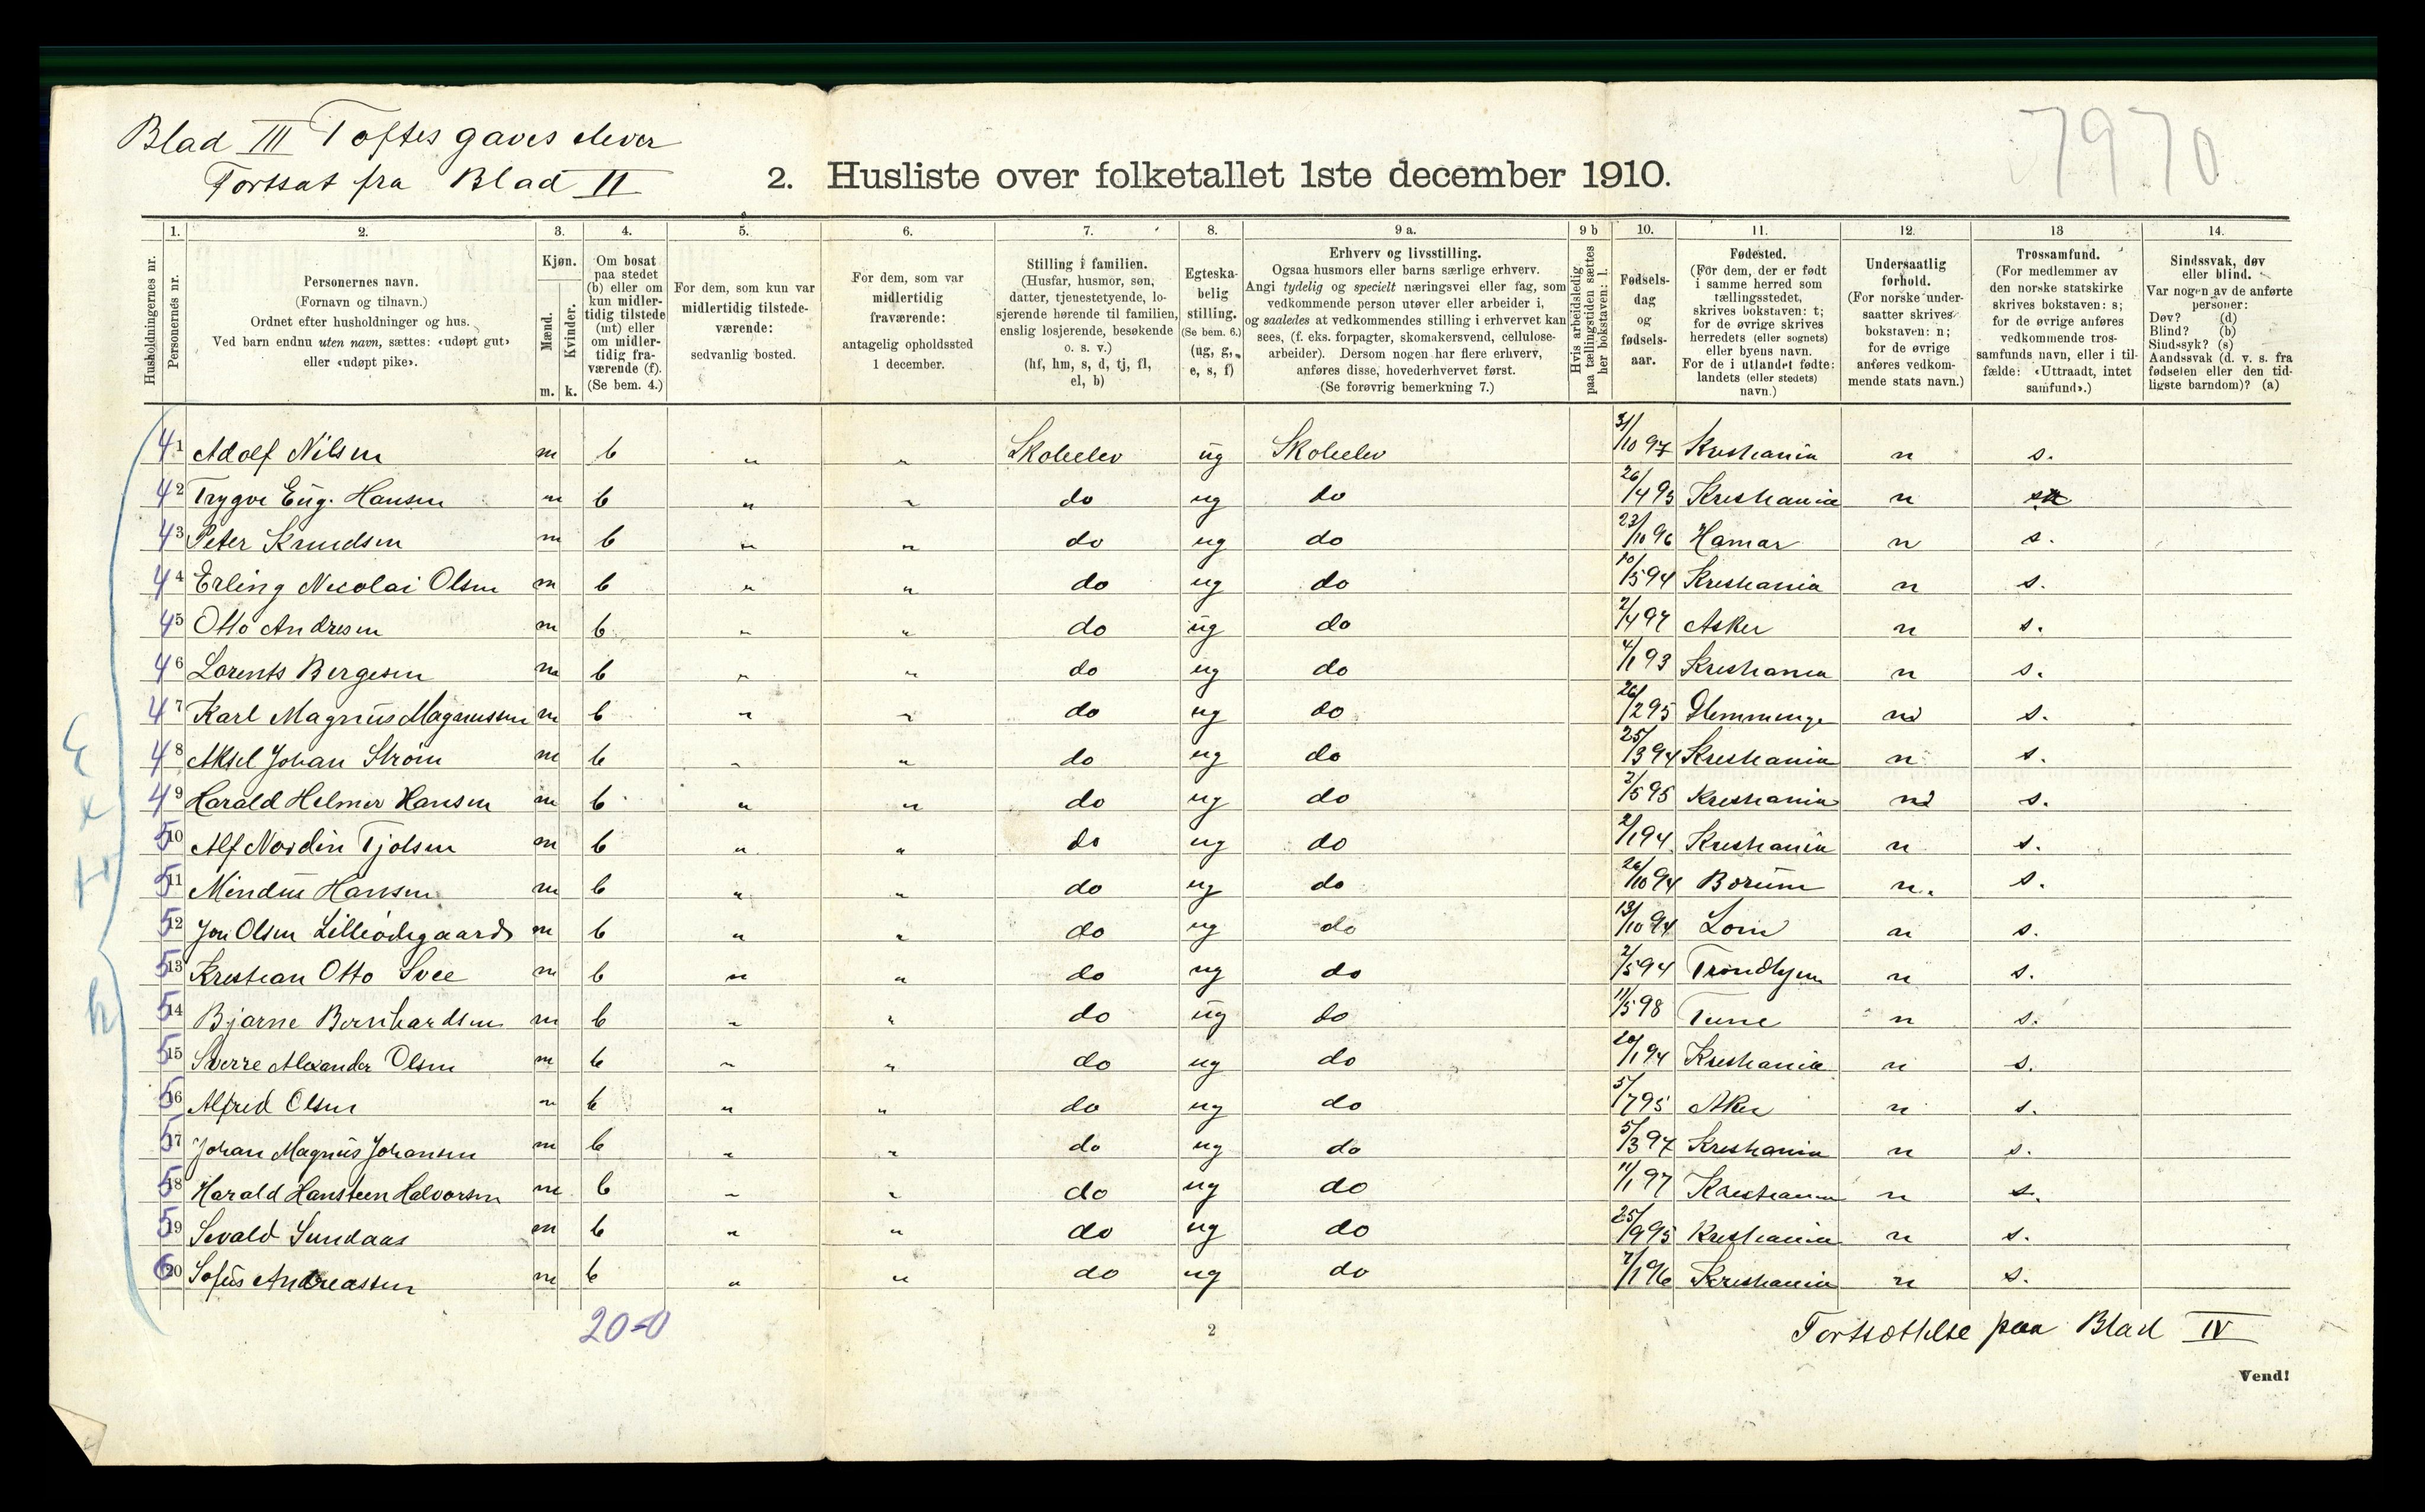 Blad III Toftes gaves elever
Fortsat fra Blad II
7970
2. Husliste over folketallet 1ste december 1910.
1. 2. 3. 4. 5. 6. 7. 8. 9 a. 9 b 10. 11. 12. 13 14.
Husholdningernes nr.
Personernes nr.
Personernes navn.
(Fornavn og tilnavn.)
Ordnet efter husholdninger og hus.
Ved barn endnu uten navn, sættes: «udøpt gut»
eller «udøpt pike».
Kjøn.
Mænd.
Kvinder.
m. k.
Om bosat
paa stedet
(b) eller om
kun midler-
tidig tilstede
(mt) eller
om midler-
tidig fra-
værende (f).
(Se bem. 4.)
For dem, som kun var
midlertidig tilstede-
værende:
sedvanlig bosted.
For dem, som var
midlertidig
fraværende:
antagelig opholdssted
1 december.
Stilling i familien.
(Husfar, husmor, søn,
datter, tjenestetyende, lo-
sjerende hørende til familien,
enslig losjerende, besøkende
o. s. v.)
(hf, hm, s, d, tj, fl,
el, b)
Egteska-
belig
stilling.
(Se bem. 6.)
(ug, g,
e, s, f)
Erhverv og livsstilling.
Ogsaa husmors eller barns særlige erhverv.
Angi tydelig og specielt næringsvei eller fag, som
vedkommende person utøver eller arbeider i,
og saaledes at vedkommendes stilling i erhvervet kan
sees, (f. eks. forpagter, skomakersvend, cellulose-
arbeider). Dersom nogen har flere erhverv,
anføres disse, hovederhvervet først.
(Se forøvrig bemerkning 7.)
Hvis arbeidsledig
paa tællingstiden sættes
her bokstaven: l.
Fødsels-
dag
og
fødsels-
aar.
Fødested.
(For dem, der er født
i samme herred som
tællingsstedet,
skrives bokstaven: t;
for de øvrige skrives
herredets (eller sognets)
eller byens navn.
For de i utlandet fødte:
landets (eller stedets)
navn.)
Undersaatlig
forhold.
(For norske under-
saatter skrives
bokstaven: n;
for de øvrige
anføres vedkom-
mende stats navn.)
Trossamfund.
(For medlemmer av
den norske statskirke
skrives bokstaven: s;
for de øvrige anføres
vedkommende tros-
samfunds navn, eller i til-
fælde: «Uttraadt, intet
samfund».)
Sindssvak, døv
eller blind.
Var nogen av de anførte
personer:
Døv? (d)
Blind? (b)
Sindssyk? (s)
Aandssvak (d. v. s. fra
fødselen eller den tid-
ligste barndom)? (a)
41 Adolf Nilsen m b „ „ Skoleelev ug Skoleelev 31/10 97 Kristiania n s.
42 Trygve Eug. Hansen m b „ „ do ug do 26/4 95 Kristiania n
43 Peter Knudsen m b „ „ do ug do 23/10 96 Hamar n s.
44 Erling Nicolai Olsen m b „ „ do ug do 10/5 94 Kristiania n s.
45 Otto Andresen m b „ „ do ug do 2/4 97 Asker n s.
46 Lorents Bergesen m b „ „ do ug do 4/1 93 Kristiania n s.
47 Karl Magnus Magnussen m b „ „ do ug do 26/2 95 Glemminge n s.
48 Aksel Johan Strøm m b „ „ do ug do 25/3 94 Kristiania n s.
49 Harald Helmer Hansen m b „ „ do ug do 2/5 95 Kristiania n s.
510 Alf Nordin Tjolsen m b „ „ do ug do 2/1 94 Kristiania n s.
511 Mindus Hansen m b „ „ do ug do 26/10 94 Borum n. s.
512 Jon Olsen Lilleødegaard m b „ „ do ug do 13/10 94 Lom n s.
513 Kristian Otto Svee m b „ „ do ug do 2/5 94 Trondhjem n s.
514 Bjarne Bernhardsen m b „ „ do ug do 11/5 98 Tune n s.
515 Sverre Alexander Olsen m b „ „ do ug do 20/1 94 Kristiania n s.
516 Alfred Olsen m b „ „ do ug do 5/7 95 Aker n s.
517 Johan Magnus Johansen m b „ „ do ug do 5/3 97 Kristiania n s.
518 Harald Hansteen Halvorsen m b „ „ do ug do 11/1 97 Kristiania n s.
519 Sevald Sundaas m b „ „ do ug do 25/9 95 Kristiania n s.
620 Sofus Andreassen m b „ „ do ug do 7/1 96 Kristiania n s.
20-0
2
Fortsættelse paa Blad IV
Vend!